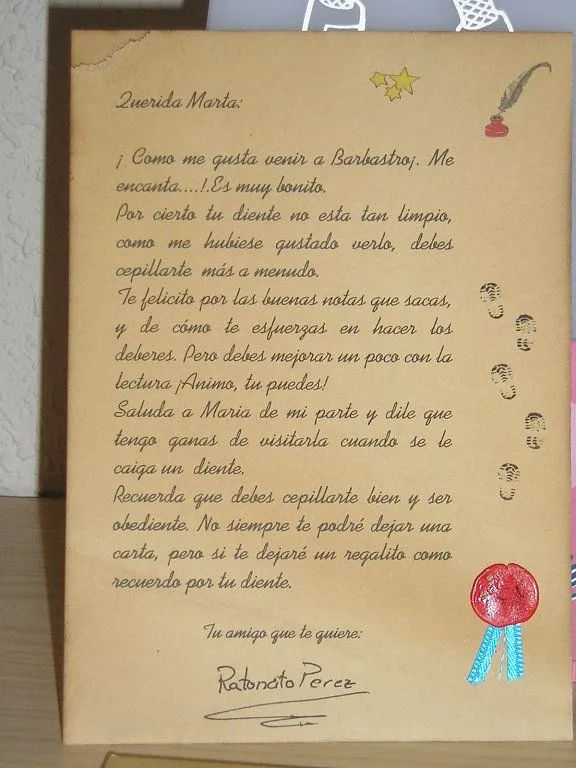 Querida Marta:
¡ Como me gusta venir a Barbastro¡. Me
encanta....!.Es muy bonito.
Por cierto tu diente no esta tan limpio,
como me hubiese gustado verlo, debes
cepillarte más a menudo.
Te felicito por las buenas notas que sacas,
y de cómo te esfuerzas en hacer los
deberes. Pero debes mejorar un poco con la
lectura ¡Animo, tu puedes!
Saluda a Maria de mi parte y dile que
tengo ganas de visitarla cuando se le
caiga un diente.
Recuerda que debes cepillarte bien y ser
obediente. No siempre te podré dejar una
carta, pero si te dejaré un regalito como
recuerdo por tu diente.
Tu amigo que te quiere:
Ratoncito Perez